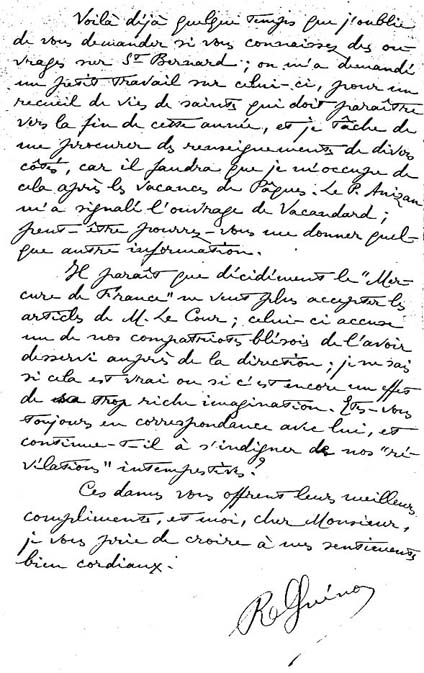 Voilà déjà quelque temps que j'oublie
de vous demander si vous connaissez des ou-
vrages sur St Bernard ; on m'a demandé
un petit travail sur celui-ci, pour un
recueil de vies de saints qui doit paraître
vers la fin de cette année, et je tâche de
me procurer des renseignements de divers
côtés, car il faudra que je m'occupe de
cela après les vacances de Pâques. Le P. Anizan
m'a signalé l'ouvrage de Vacandard ;
peut-être pourrez-vous me donner quel-
que autre information.
Il paraît que décidément le "Mer-
cure de France" ne veut plus accepter les
articles de M. Le Cour ; celui-ci accuse
un de nos compatriotes blésois de l'avoir
desservi auprès de la direction ; je ne sais
si cela est vrai ou si c'est encore un effet
de sa trop riche imagination. Êtes-vous
toujours en correspondance avec lui, et
continue-t-il à s'indigner de nos "ré-
vélations" intempestives ?
Ces dames vous offrent leurs meilleurs
compliments, et moi, cher Monsieur,
je vous prie de croire à mes sentiments
bien cordiaux.
R. Guénon